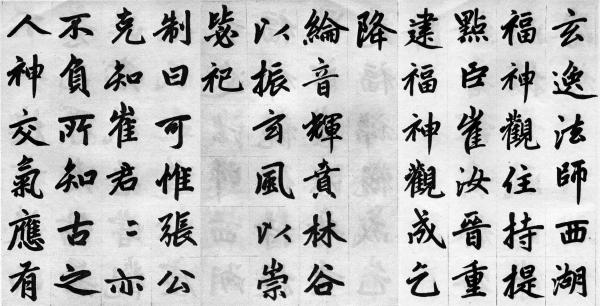 玄逸法師西湖
福神觀住持提
點臣崔汝晉重
建福神觀成乞
降
綸音輝賁林谷
以振玄風以崇
毖祀
制曰可惟張公
克知崔君〻亦
不負所知古之
人神交氣應有